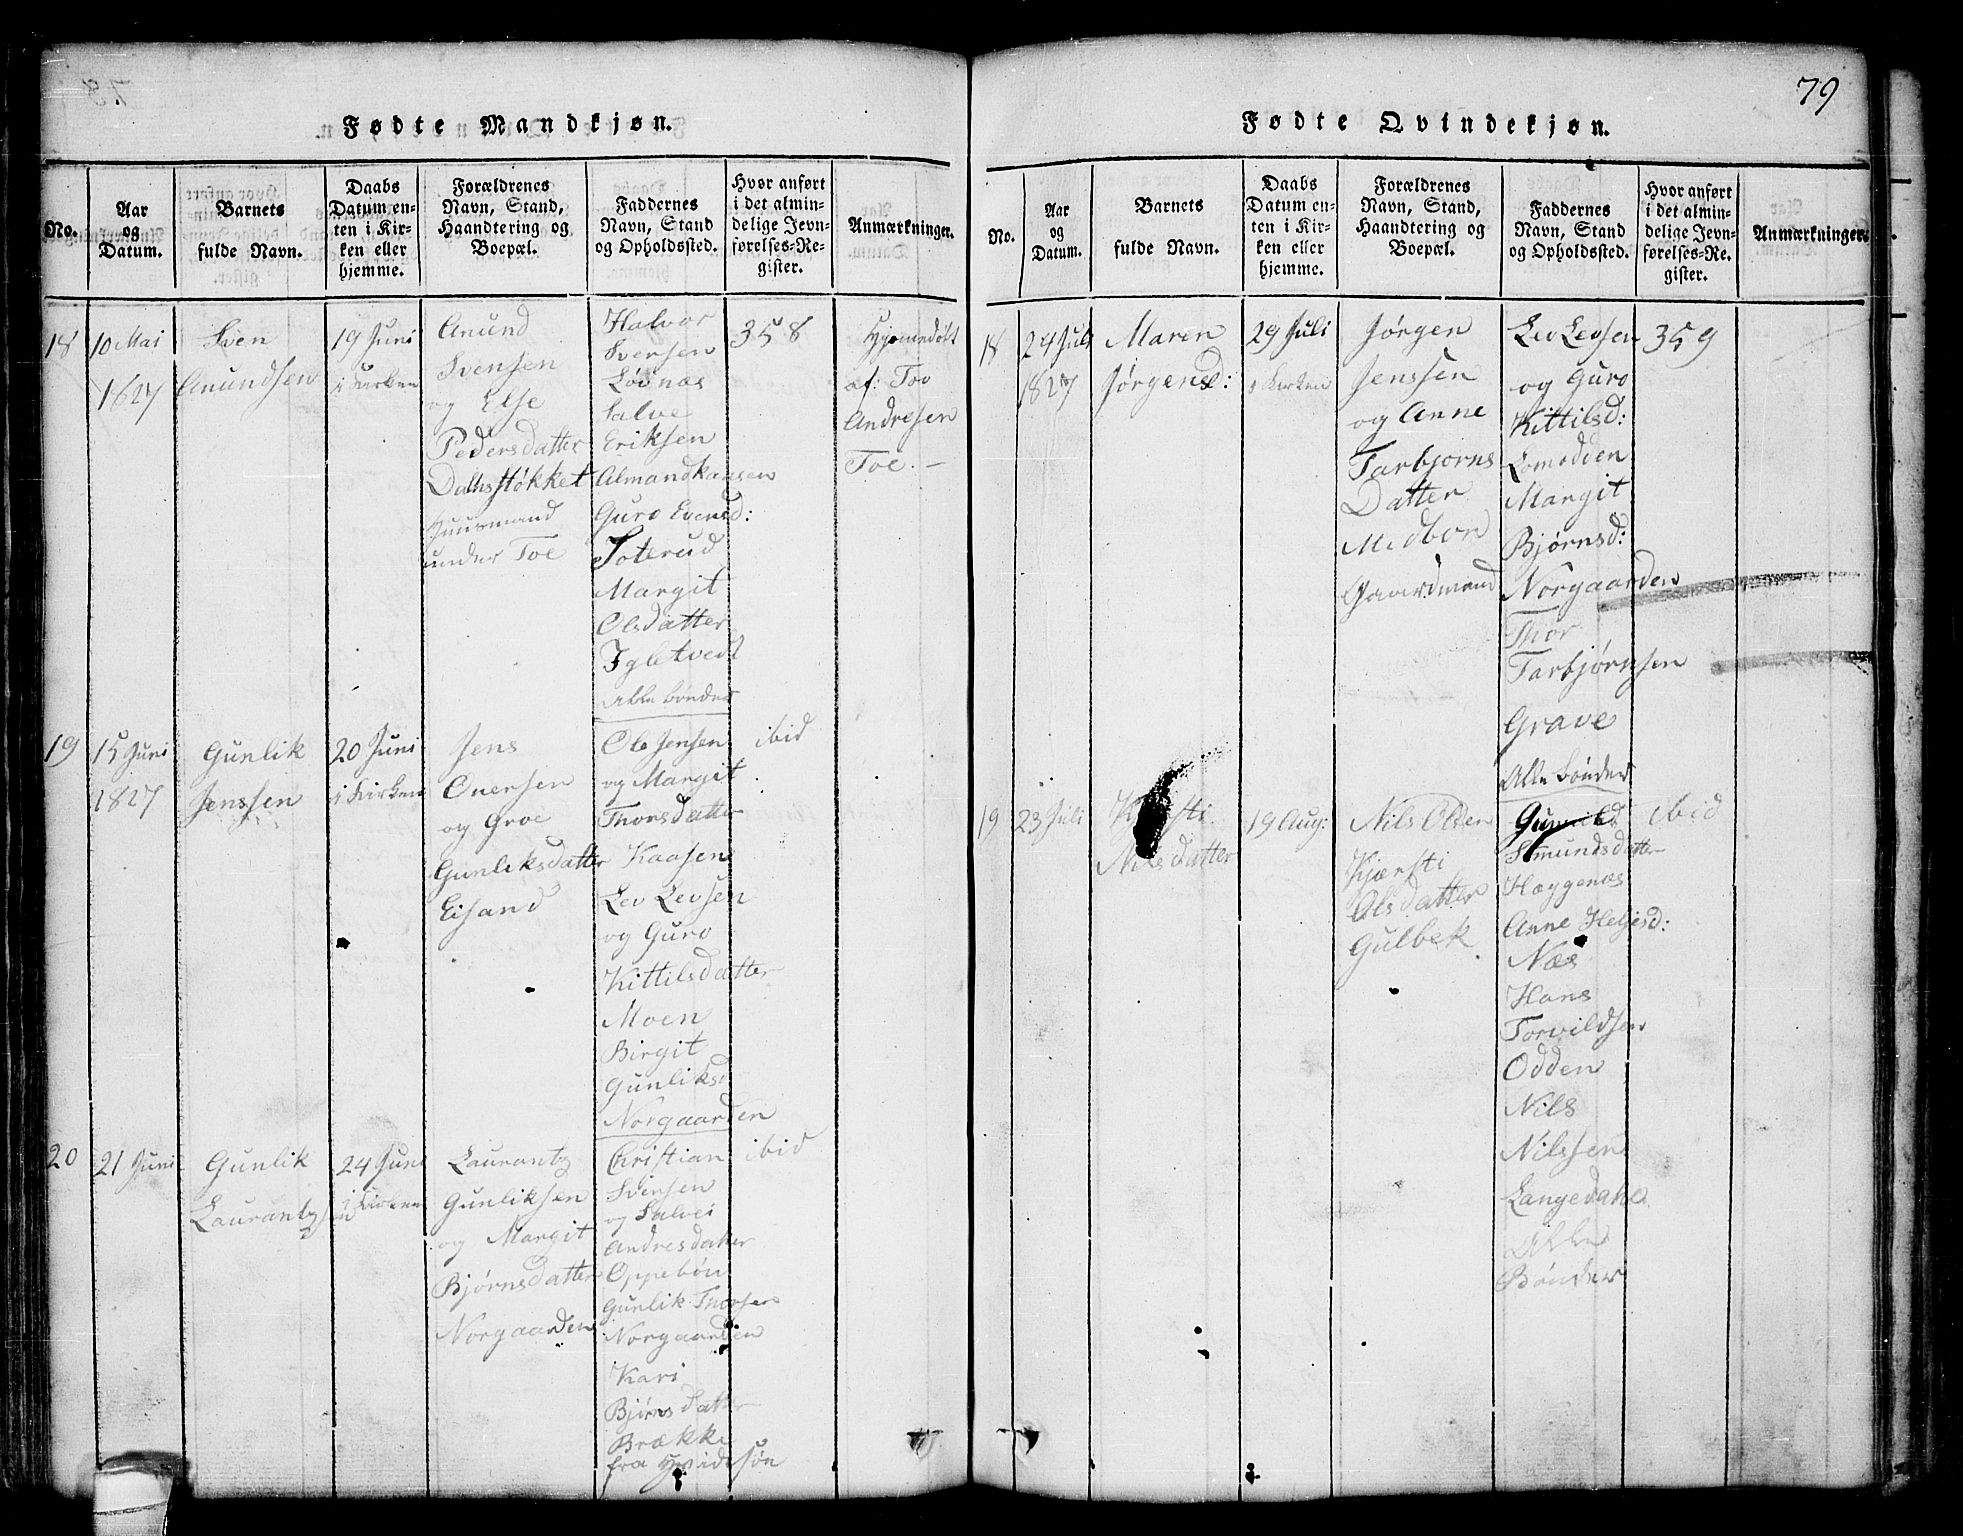 79
Fødte Mandkjøn.
No.
Aar
og
Datum.
Barnets
fulde Navn.
Daabs
Datum en-
ten i Kir-
ken eller
hjemme.
Forældrenes
Navn, Stand,
Haandtering og
Boepæl.
Faddernes
Navn, Stand
og Opholdssted.
Hvor anført
i det almin-
delige Jevn-
førelses-Re-
gister.
Anmærkninger.
18
10 Mai
1827
Sven
Anundsen
19 Juni
i Kirken
Anund
Svensen
og Else
Pedersdatter
Dalhsstøkket
Huusmand
under Toe
Halvor
Svensen
Lødnæs
Salve
Eriksen
Guro Evensd:
Soterud
Margit
Olsdatter
Igletvedt
Alle bønder
358
Hjemmdøbt
af: Tov
Andresen
Toe. -
19
15 Juni
1827
Gunlik
Jenssen
20 Juni
i Kirken
Jens
Evensen
og Groe
Gunliksdatter
Eisand
Ole Jensen
og Margit
Thorsdatter
Kaasen
Lev Levsen
og Guro
Kittilsdatter
Moen
Birgit
Gunliksd
Norgaarden
ibid
20
21 Juni
Gunlik
24 Juni
i Kirken
Gunliksen
og Margit
Bjørnsdatter
Norgaarden
Christian
Svensen
og Salvei
Andresdatter
Oppebøn
Gunlik Thorsen
Norgaarden
Kari
Bjørnsdatter
Brække
fra Hvidesøe
ibid
Fødte Qvindekjøn.
No.
Aar
og
Datum.
Barnets
fulde Navn.
Daabs
Datum en-
ten i Kir-
ken eller
hjemme.
Forældrenes
Navn, Stand,
Haandtering og
Boepæl.
Faddernes
Navn, Stand
og Opholdssted.
Hvor anført
i det almin-
delige Jevn-
førelses-Re-
gister.
Anmærkninger.
18
24 Juli
1827
Maren
Jørgensd:
29 Juli
i Kirken
Jørgen
Jenssen
og Anne
Tarbjorns
Datter
Midbon
Gaardmand
Lev Levsen
og Guro
Kittilsd:
Lomodden
Margit
Bjørnsd:
Norgaarden
Thor
Tarbjørnsen
Grave
Alle bønder
359
19
23 Juli
Nilsdatter
19 Aug:
Nils Olsen
Kjærsti
Olsdatter
Gulbek
Gunild
Sæmundsdatter
Hæggenæs
Anne Heljesd:
Næs
Hans
Torvildsen
Odden
Nils
Nilssen
Langedahl
Alle
Bønder
ibid